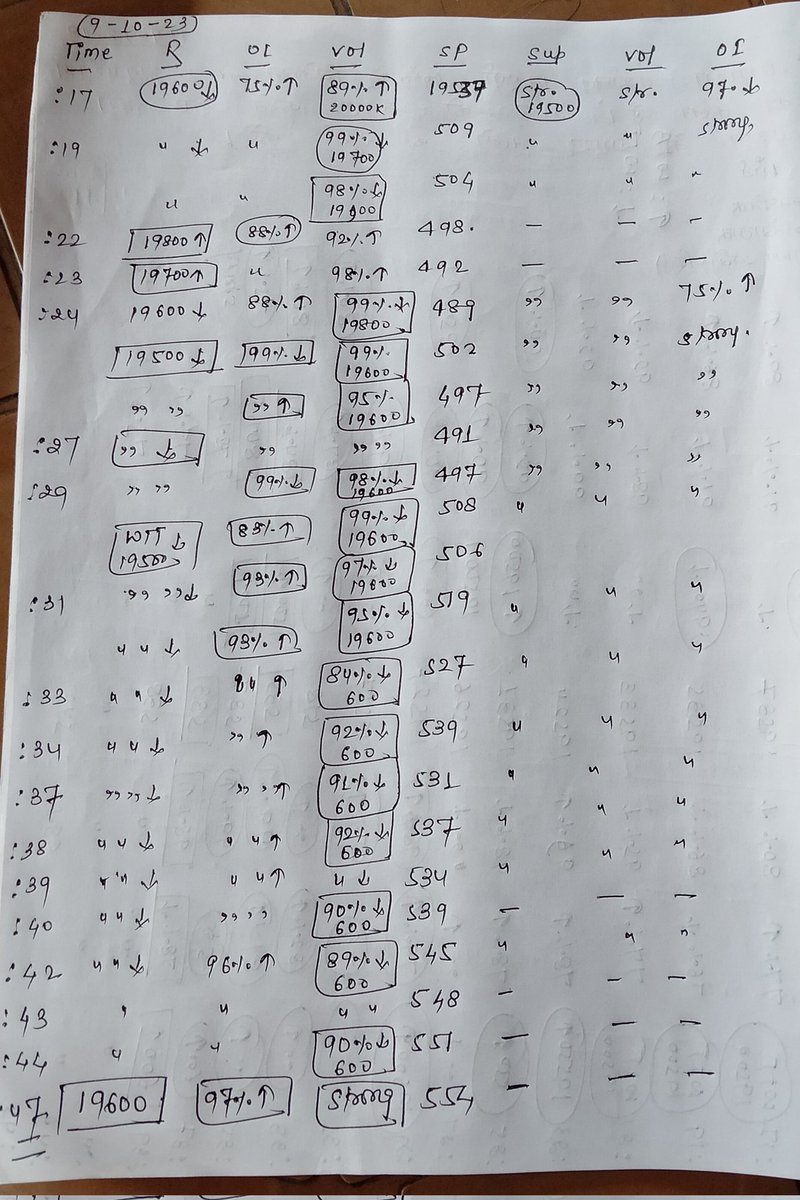 (9-10-23)
Time R OI Vol SP Sup Vol OI
:17 19600↓ 75%↑ 89%↑ 20000K 19537 Str. 19500 Str. 97%↓
:19 " ↓ " 99%↓ 19700 509 " " Strong
" " 98%↓ 19900 504 " " "
:22 19800↑ 88%↑ 92%↑ 498. — — —
:23 19700↑ " 98%↑ 492 — — —
:24 19600↓ 88%↑ 99%↓ 19800 489 " " 75%↑
19500↓ 99%↓ 99% 19600 502 " " Strong.
" " " ↑ 95% 19600 497 " " "
:27 " ↓ " " " 491 " " "
:29 " " 99%↓ 98%↓ 19600 497 " " "
WTT ↓ 19500 83%↑ 99%↓ 19600 508 " " "
:31 " " ↓ 93%↑ 97%↓ 19600 506
" " ↓ 93%↑ 95%↓ 19600 519 " " "
:33 " " ↓ " ↑ 84%↓ 600 527 " " "
:34 " " ↓ " ↑ 92%↓ 600 539 " " "
:37 " " ↓ " " ↑ 91%↓ 600 531 " " "
:38 " " ↓ " " ↑ 92%↓ 600 537 " " "
:39 " " ↓ " " ↑ " ↓ 534 " " "
:40 " " ↓ " " 90%↓ 600 539 — — —
:42 " " ↓ 96%↑ 89%↓ 600 545 " " "
:43 " " " " 548 — — —
:44 " " 90%↓ 600 551 — — —
:47 19600 97%↑ Strong 554 — — —